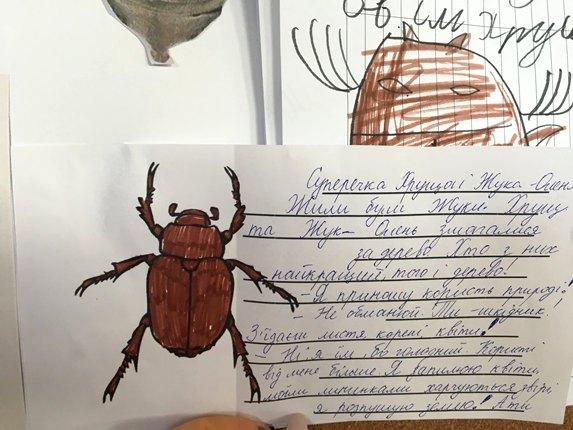 ов їм хрущ
Суперечка Хруща і Жука-Олень
Жили були Жуки. Хрущ
та Жук-Олень змагалися
за дерево. Хто з них
найкращий, того і дерево!
- Я приношу користь природі!
- Не обманюй. Ти - шкідник.
З'їдаєш листя, корені, квіти!
- Ні я їм, бо голодний. Користі
від мене більше. Я запилюю квіти,
моїми личинками харчуються звірі,
я розпушую землю! А ти